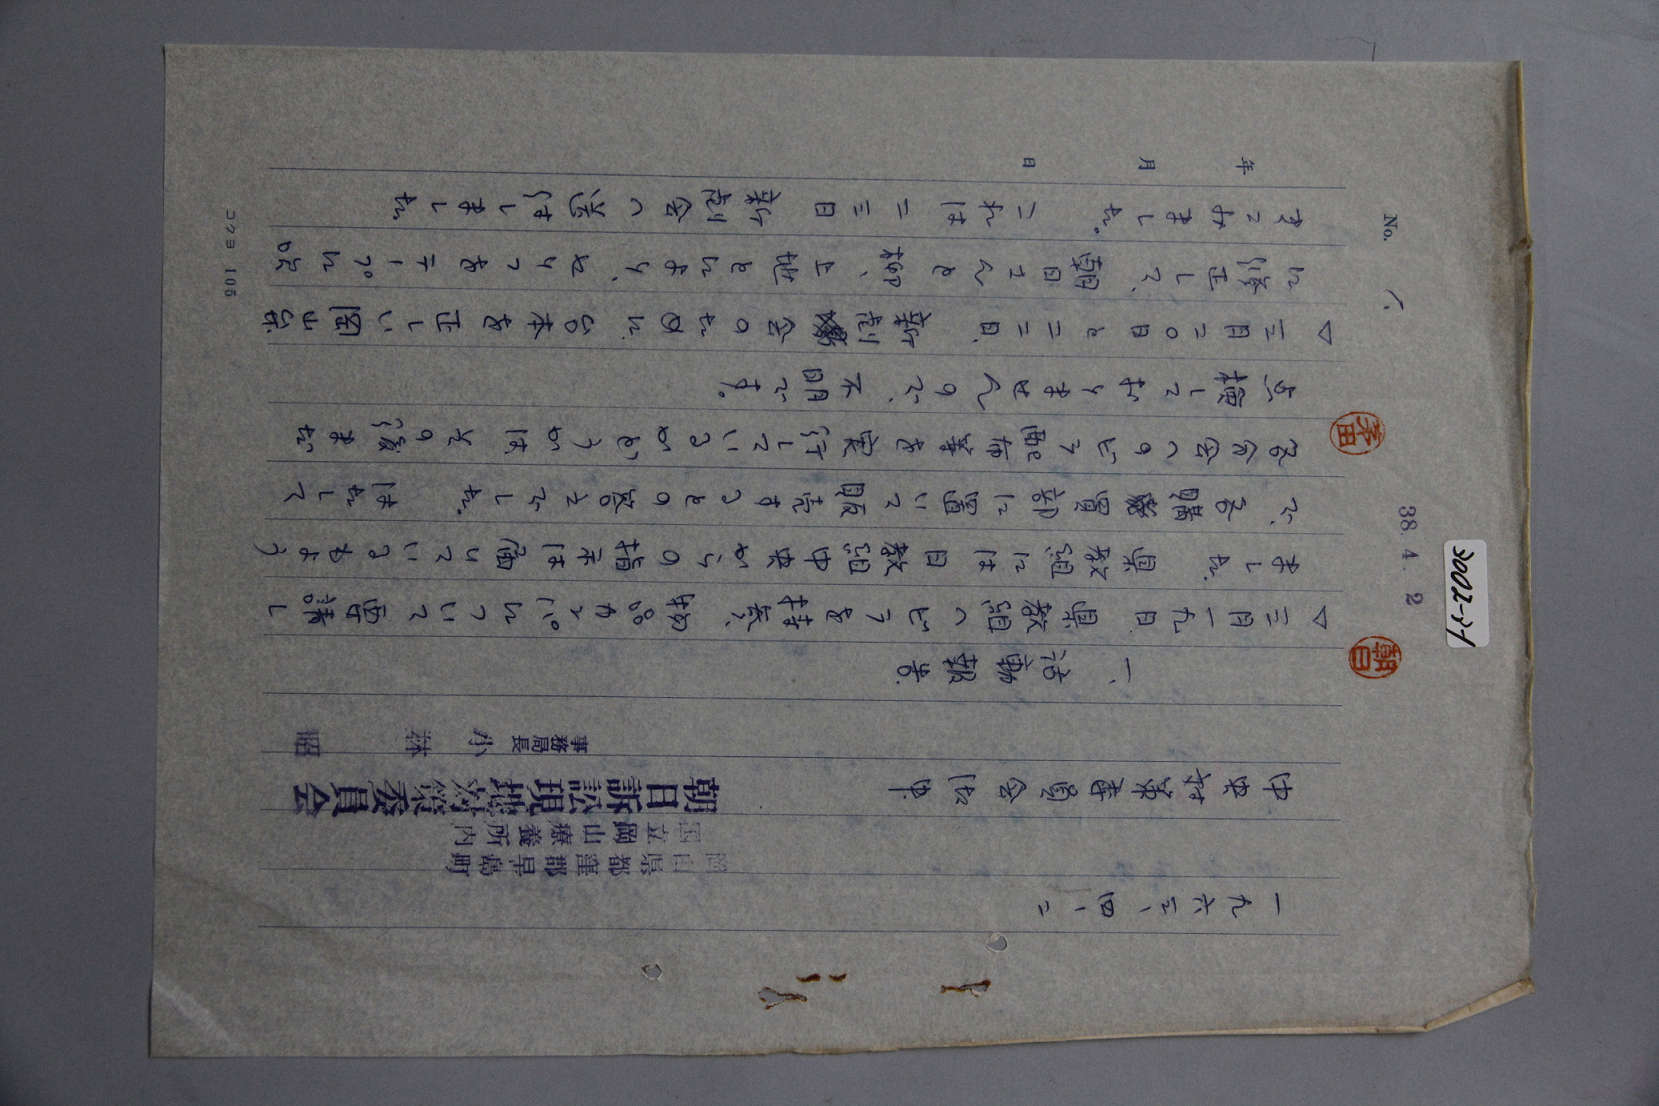 No. 1.
38. 4. 2
朝日
年 月 日
一九六三、四、二
岡山県都窪郡早島町
国立岡山療養所内
朝日訴訟現地対策委員会
事務局長 小林 昭
中央対策委員会御中
一、活動報告.
▽三月一九日. 県教組へビラを持参、物品カンパについて要請し
ました. 県教組には日教組中央からの指示は届いているよう
で、各購買部に置いて販売するとの答えでした. はたして
各分会へのビラ配布等を実行しているかどうかは その後まだ
点検しておりませんので、不明です。
▽三月二〇日と二二日. 新劇会のために台本を正しい岡山弁
に修正して、朝日さんと柳、上地とにより、せりふをテープに吹
きこみました。これは二三日 新劇会へ送付しました。
コクヨ 105